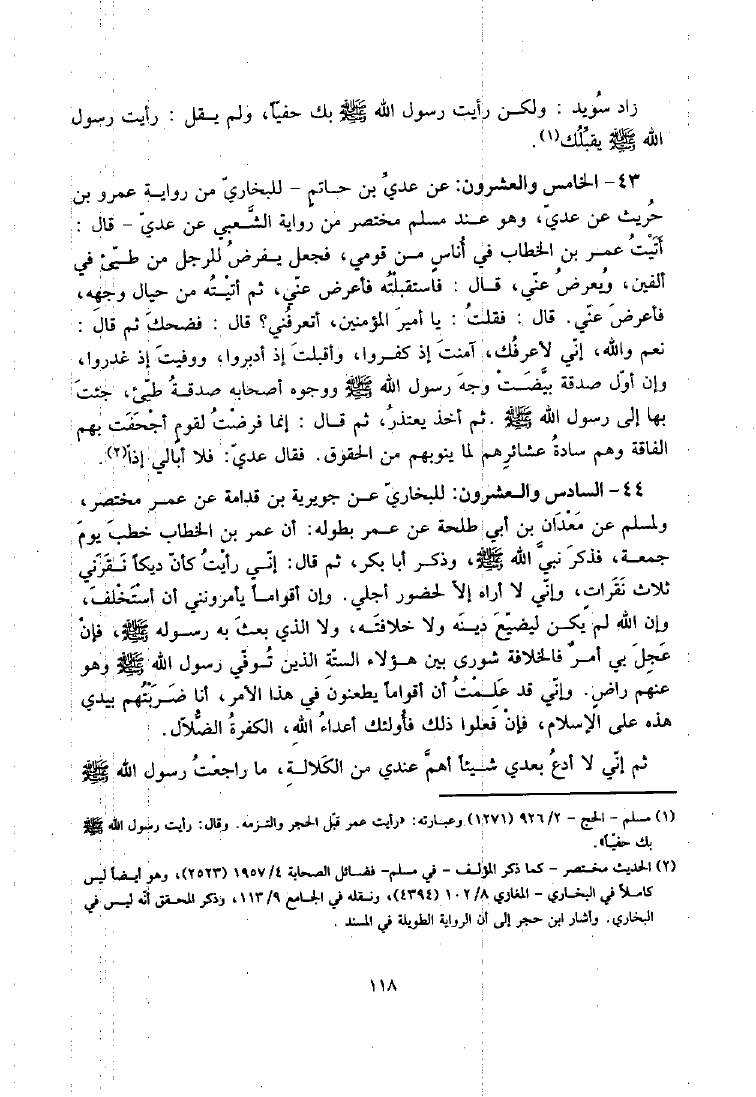 زاد سُويد : ولكـن رأيت رسول الله ﷺ بك حفيّاً، ولم يـقل : رأيت رسول
الله ﷺ يقبِّلُك(١).
٤٣- الخامس والعشرون: عن عديِّ بن حـاتمٍ - للبخاريّ من روايـة عمرو بن
حُريث عن عديّ، وهو عـند مسلم مختصر من رواية الشَّعبي عن عديّ - قال :
أَتَيْتُ عمر بن الخطاب في أُناسٍ مـن قومي، فجعل يـفرضُ للرجل من طـيّئ في
ألفين، ويُعرضُ عنّي، قـال : فاستقبلْتُه فأعرض عنّي، ثم أتيْتُه من حيال وجهه،
فأعرضَ عنّي. قال : فقلتُ : يا أميرَ المؤمنين، أتعرفُني؟ قال : فضحكَ ثم قالَ :
نعم والله، إنّي لأعرفُك، آمنتَ إذ كـفروا، وأقبلتَ إذ أدبروا، ووفيتَ إذ غدروا،
وإن أوّل صدقة بيَّضَـتْ وجهَ رسول الله ﷺ ووجوه أصحابه صدقـةُ طيّئ، جئتَ
بها إلى رسول الله ﷺ .ثم أخذ يعتذرُ، ثم قـال : إنما فرضْتُ لقومٍ أجْحَفَت بهم
الفاقة وهم سادةُ عشائرِهم لما ينوبهم من الحقوق. فقال عديّ: فلا أُبالي إذاً(٢).
٤٤- السادس والـعشرون: للبخاريّ عـن جويرية بن قدامة عن عمـر مختصر،
ولمسلم عن مَعْدَان بن أبي طلحة عن عمر بطوله: أن عمر بن الخطاب خطبَ يومَ
جمعـة، فذكرَ نبيَّ الله ﷺ، وذكـر أبا بكر، ثم قال: إنّـي رأيْتُ كأنّ ديكاً نَـقَرَني
ثلاث نَقَراتٍ، وإنّي لا أراه إلاّ لحضور أجلي. وإن أقوامـاً يأمرونني أن أستَخْلفَ،
وإن الله لم يكـن ليضيّعَ دينَه ولا خلافتَـه، ولا الذي بعثَ به رسـوله ﷺ، فإنْ
عَجِلَ بي أمـرٌ فالخلافة شورى بين هـؤلاء الستّةِ الذين تُـوفّي رسول الله ﷺ وهو
عنهم راضٍ. وإنّي قد عَلِـمْتُ أن أقواماً يطعنون في هذا الأمر، أنا ضَـرَبْتُهم بيدي
هذه على الإسلام، فإنْ فعلوا ذلك فأُولئك أعداءُ اللهِ، الكفرةُ الضُّلاّل.
ثم إنّي لا أدعُ بعدي شـيئاً أهمَّ عندي من الكَلالـةِ، ما راجعْتُ رسول الله ﷺ
(١) مسلم - الحج - ٩٢٦/٢ (١٢٧١) وعبارته: «رأيت عمر قبّل الحجر والتـزمه. وقال: رأيت رسول الله ﷺ
بك حفيّاً».
(٢) الحديث مختصر - كما ذكر المؤلف - في مسلم- فضائل الصحابة ١٩٥٧/٤ (٢٥٢٣)، وهو أيضاً ليس
كاملاً في البخاري - المغازي ١٠٢/٨ (٤٣٩٤)، ونـقله في الجامع ١١٣/٩، وذكر المحقق أنّه ليس في
البخاري. وأشار ابن حجر إلى أن الرواية الطويلة في المسند .
١١٨